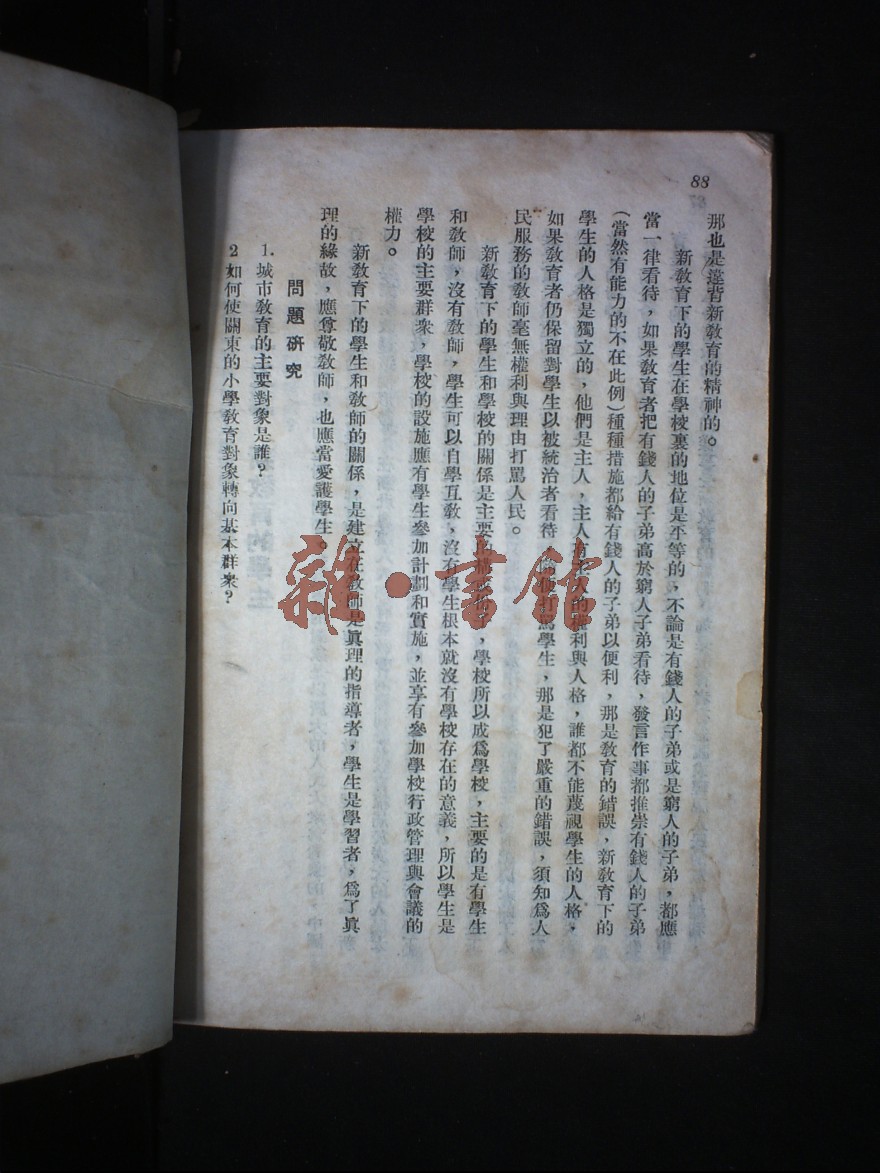 88
那也是違背新教育的精神的。
新教育下的學生在學校裏的地位是平等的，不論是有錢人的子弟或是窮人的子弟，都應
當一律看待，如果教育者把有錢人的子弟高於窮人子弟看待，發言作事都推崇有錢人的子弟
（當然有能力的不在此例）種種措施都給有錢人的子弟以便利，那是教育的錯誤，新教育下的
學生的人格是獨立的，他們是主人，主人有主人的權利與人格，誰都不能蔑視學生的人格，
如果教育者仍保留對學生以被統治者看待，隨便打罵學生，那是犯了嚴重的錯誤，須知爲人
民服務的教師毫無權利與理由打罵人民。
新教育下的學生和學校的關係是主要的構成份子，學校所以成爲學校，主要的是有學生
和教師，沒有教師，學生可以自學互教，沒有學生根本就沒有學校存在的意義，所以學生是
學校的主要群衆，學校的設施應有學生參加計劃和實施，並享有參加學校行政管理與會議的
權力。
新教育下的學生和教師的關係，是建立在教師是眞理的指導者，學生是學習者，爲了眞
理的緣故，應尊敬教師，也應當愛護學生。
問題研究
1.城市教育的主要對象是誰？
2如何使關東的小學教育對象轉向基本群衆？
雜·書館